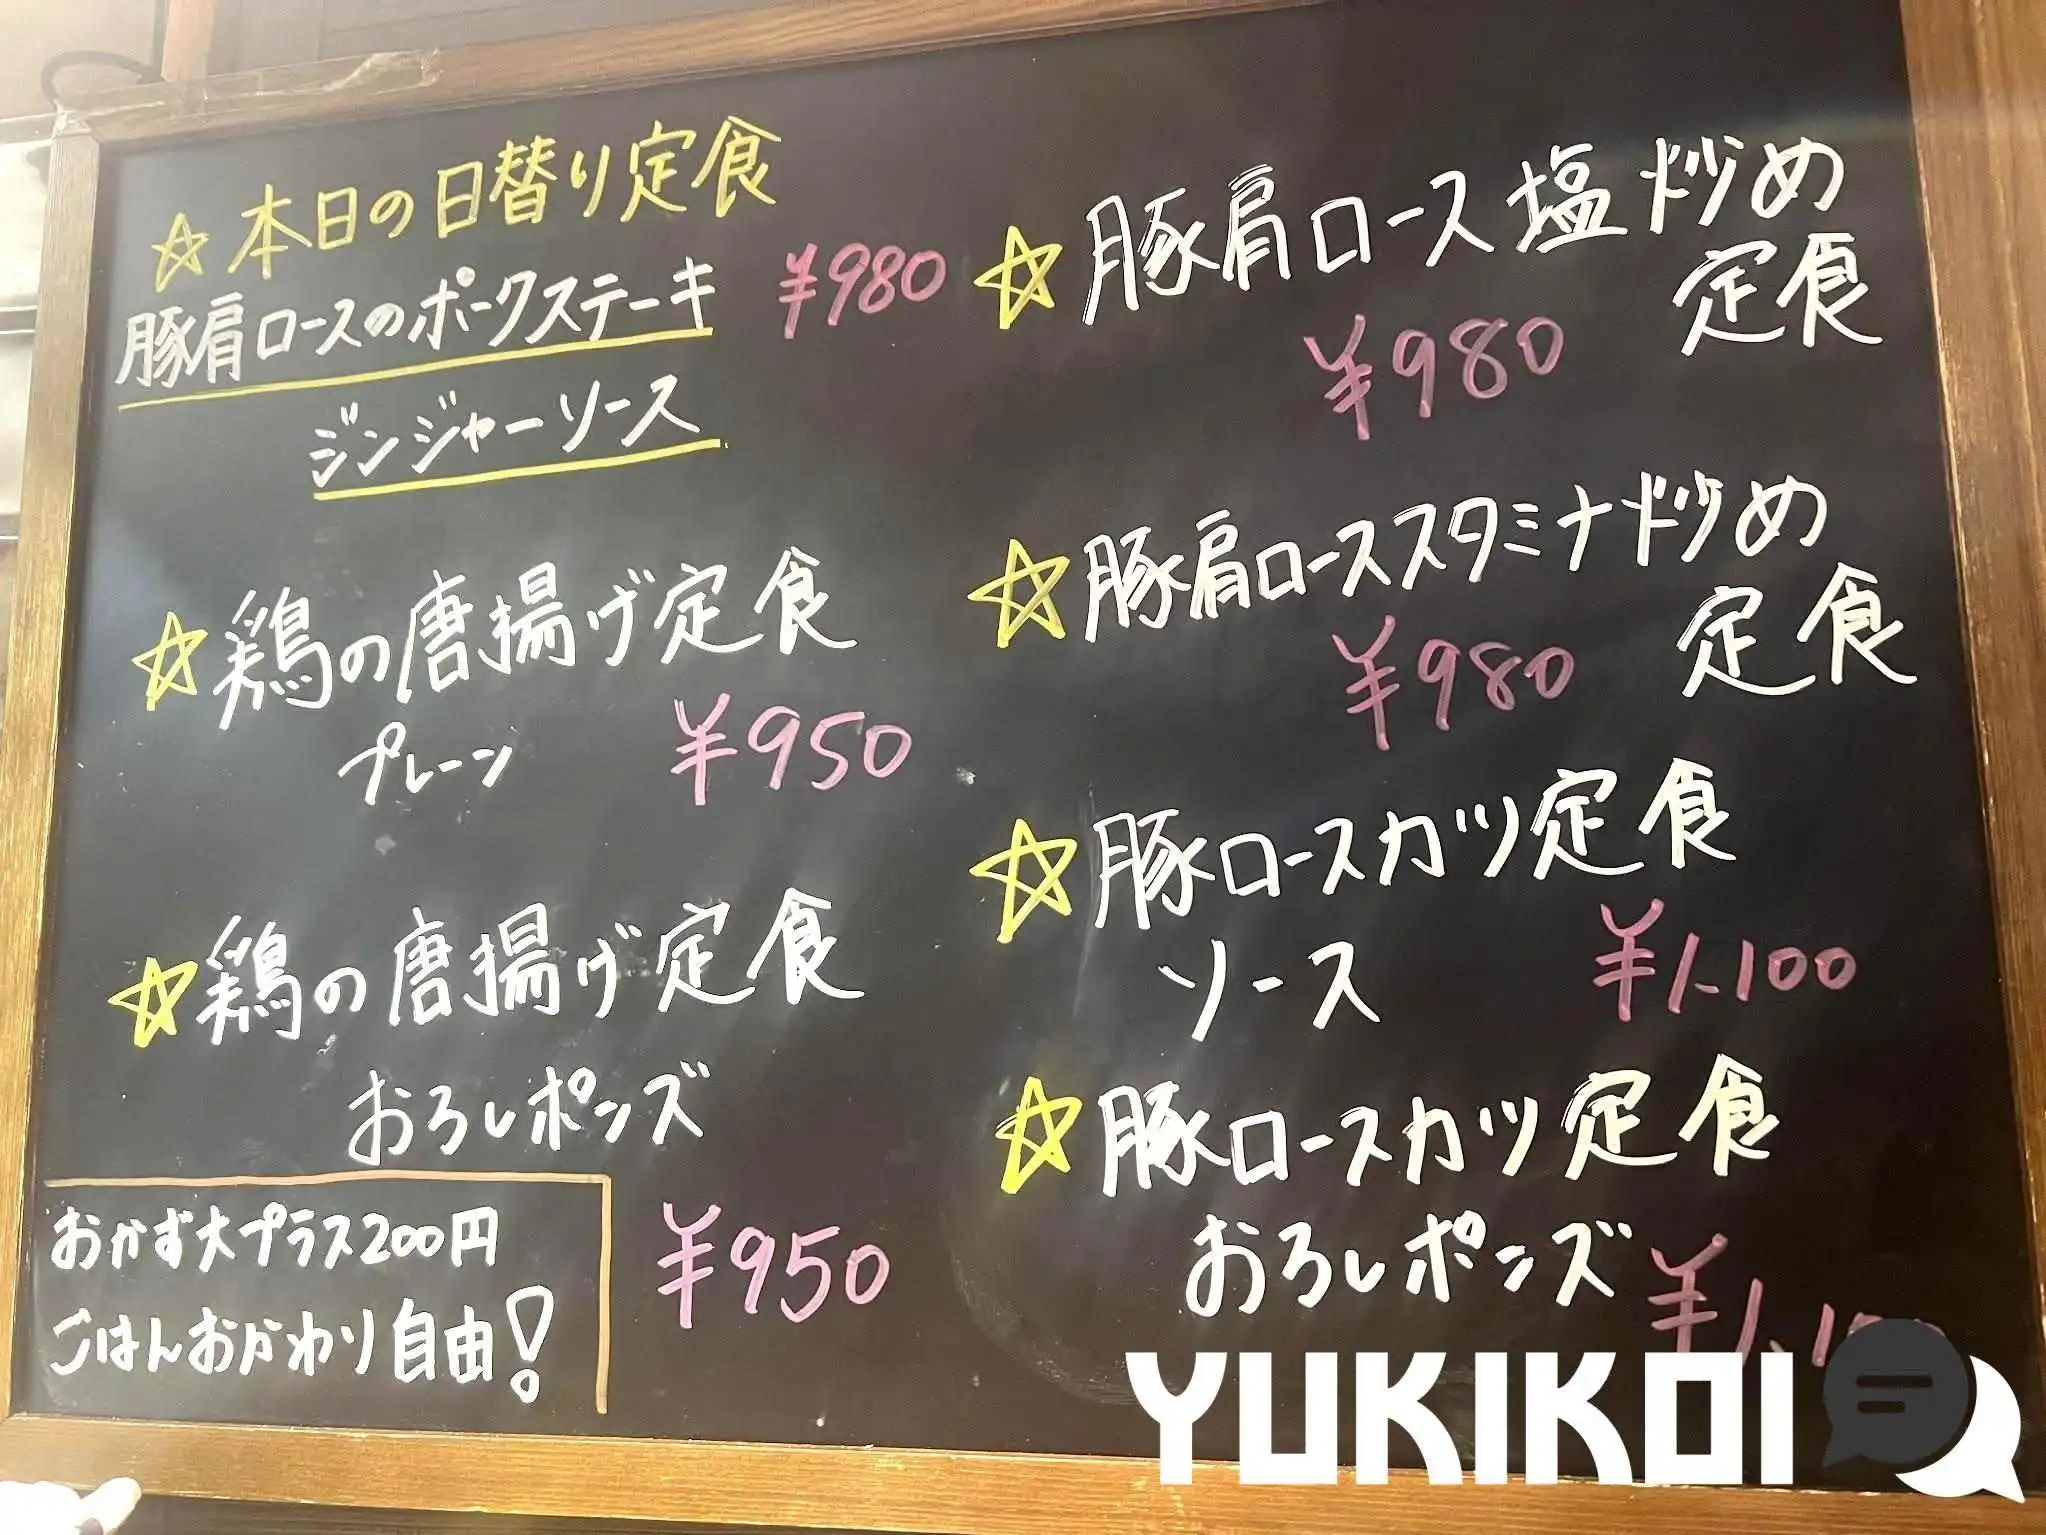 ☆本日の日替り定食
豚肩ロースのポークステーキ ¥980
ジンジャーソース
☆鶏の唐揚げ定食
プレーン ¥950
☆鶏の唐揚げ定食
おろしポンズ
¥950
おかず大プラス200円
ごはんおかわり自由!
☆豚肩ロース塩炒め
定食
¥980
☆豚肩ローススタミナ炒め
定食
¥980
☆豚ロースカツ定食
ソース ¥1.100
☆豚ロースカツ定食
おろしポンズ
YUKIKOI